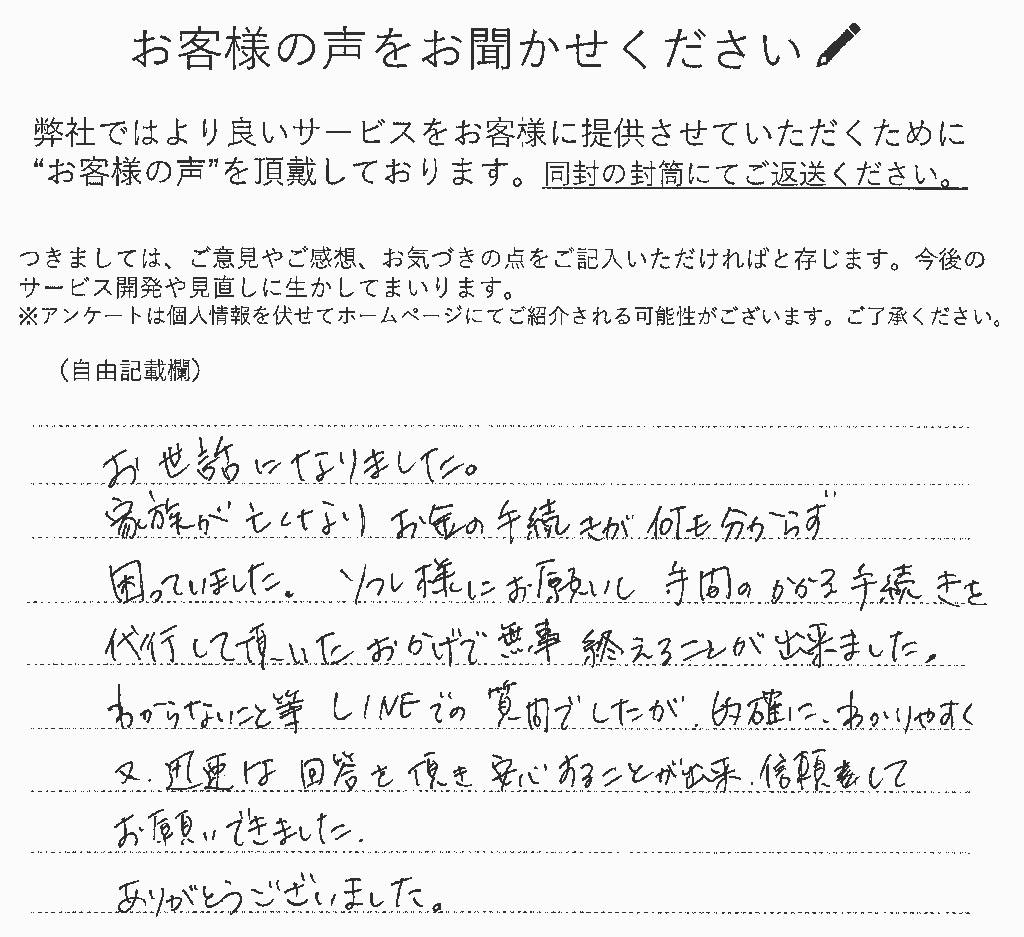 お客様の声をお聞かせください
弊社ではより良いサービスをお客様に提供させていただくために
“お客様の声”を頂戴しております。同封の封筒にてご返送ください。
つきましては、ご意見やご感想、お気づきの点をご記入いただければと存じます。今後の
サービス開発や見直しに生かしてまいります。
※アンケートは個人情報を伏せてホームページにてご紹介される可能性がございます。ご了承ください。
（自由記載欄）
お世話になりました。
家族が亡くなり お金の手続きが何も分からず
困っていました。 ソレし様にお願いし 手間のかかる手続きを
代行して頂いたおかげで無事 終えることが出来ました。
わからないこと等 LINEでの 質問でしたが、的確に、わかりやすく
又、迅速な 回答を頂き 安心することが出来、信頼をして
お願いできました。
ありがとうございました。